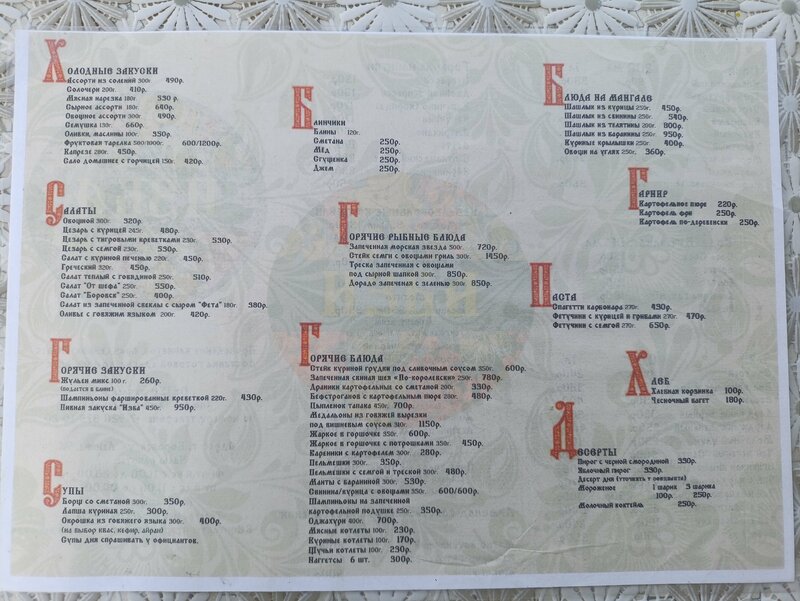 Холодные закуски
Ассорти из солений 300г. 490р.
Солочери 200г. 410р.
Мясная нарезка 180г. 550 р.
Сырное ассорти 180г. 640р.
Овощное ассорти 300г. 490р.
Семушка 150г. 660р.
Оливки, маслины 100г. 350р.
Фруктовая тарелка 500/1000г. 600/1200р.
Капрезе 280г. 450р.
Сало домашнее с горчицей 150г. 420р.
Салаты
Овощной 300г. 320р.
Цезарь с курицей 245г. 480р.
Цезарь с тигровыми креветками 230г. 530р.
Цезарь с семгой 230г. 530р.
Салат с куриной печенью 220г. 450р.
Греческий 320г. 450р.
Салат теплый с говядиной 250г. 510р.
Салат "От шефа" 250г. 550р.
Салат "Боровск" 250г. 400р.
Салат из запеченной свеклы с сыром "Фета" 180г. 380р.
Оливье с говяжим языком 200г. 420р.
Горячие закуски
Жульен микс 100 г. 260р.
(подается в блине)
Шампиньоны фаршированные креветкой 220г. 430р.
Пивная закуска "Изба" 450г. 950р.
Супы
Борщ со сметаной 300г. 350р.
Лапша куриная 250г. 300р.
Окрошка из говяжего языка 300г. 400р.
(на выбор квас, кефир, айран)
Супы дня спрашивать у официантов.
Блинчики
Блины 120г.
Сметана 250р.
Мёд 250р.
Сгущенка 250р.
Джем 250р.
Горячие рыбные блюда
Запеченная морская звезда 300г. 720р.
Стейк семги с овощами гриль 300г. 1450р.
Треска запеченная с овощами
под сырной шапкой 300г. 850р.
Дорадо запеченая с зеленью 300г. 850р.
Горячие блюда
Стейк куриной грудки под сливочным соусом 350г. 600р.
Запеченная свиная шея "По-королевски" 250г. 780р.
Драники картофельные со сметаной 200г. 330р.
Бефстроганов с картофельным пюре 280г. 480р.
Цыпленок тапака 450г. 700р.
Медальоны из говяжей вырезки
под вишневым соусом 310г. 1150р.
Жаркое в горшочке 350г. 600р.
Жаркое в горшочке с потрошками 350г. 450р.
Вареники с картофелем 300г. 280р.
Пельмешки 300г. 350р.
Пельмешки с семгой и треской 300г. 480р.
Манты с бараниной 300г. 530р.
Свинина/курица с овощами 350г. 600/600р.
Шампиньоны на запеченной
картофельной подушке 250г. 350р.
Оджахури 400г. 700р.
Мясные котлеты 100г. 230р.
Куриные котлеты 100г. 170р.
Щучьи котлеты 100г. 230р.
Наггетсы 6 шт. 300р.
Блюда на мангале
Шашлык из курицы 250г. 450р.
Шашлык из свинины 250г. 540р.
Шашлык из телятины 200г. 800р.
Шашлык из баранины 250г. 950р.
Куриные крылышки 250г. 400р.
Овощи на углях 250г. 360р.
Гарнир
Картофельное пюре 220р.
Картофель фри 250р.
Картофель по-деревенски 250р.
Паста
Спагетти карбонара 270г. 430р.
Фетучини с курицей и грибами 270г. 470р.
Фетучини с семгой 270г. 650р.
Хлеб
Хлебная корзинка 100р.
Чесночный багет 180р.
Десерты
Пирог с черной смородиной 330р.
Яблочный пирог 330р.
Десерт дня (уточнять у официанта)
Мороженое 1 шарик 3 шарика
100р. 250р.
Молочный коктейль 250р.